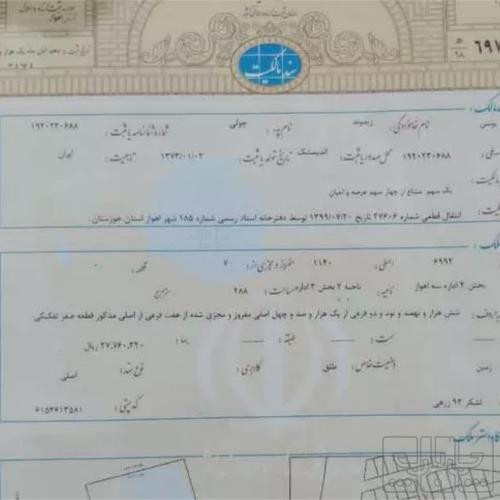 سازمان ثبت اسناد و املاک کشور
اهواز
سند مالکیت
۶۹۷
۹۸
مالک :
یونس نام خانوادگی : زیبوند نام پدر : شماره شناسنامه یا ثبت : ۱۹۲۰۲۳۰۶۸۸
ملی : ۱۹۲۰۲۳۰۶۸۸ محل صدور یا ثبت : اندیمشک تاریخ تولد یا ثبت : ۱۳۷۳/۰۱/۰۲ تابعیت : ایران
مالکیت : یک سهم مشاع از چهار سهم عرصه و اعیان
انتقال قطعی شماره ۲۷۶۰۶ تاریخ ۱۳۹۹/۰۷/۲۰ توسط دفترخانه اسناد رسمی شماره ۱۸۵ شهر اهواز استان خوزستان
ملک :
۶۹۹۲ اصلی : ۱۱۴۰ مفروز و مجزی از : ۷ قطعه :
بخش ۲ اداره سه اهواز ناحیه : ناحیه ۲ بخش ۲ اداره مساحت : ۲۸۸ مترمربع
شش هزار و نهصد و نود و دو فرعی از یک هزار و صد و چهل اصلی مفروز و مجزی شده از هفت فرعی از اصلی مذکور قطعه صفر تفکیکی
سمت : طبقه : بها : ۲۷,۷۶۰,۳۲۰ ریال
زمین وضعیت خاص : طلق کاربری : نوع سند : اصلی
لشکر ۹۲ زرهی کد پستی : ۶۱۵۳۶۱۳۵۸۱
کاداستر ملک :